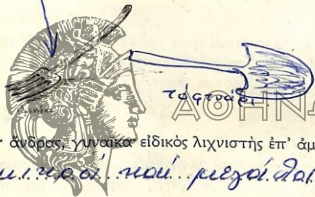 ΑΘΗΝ
ἄνδρας, γυναικα εἰδικὸς λιχνιστὴς ἐπ' ἀμ
μικροί καί μεγάλοι